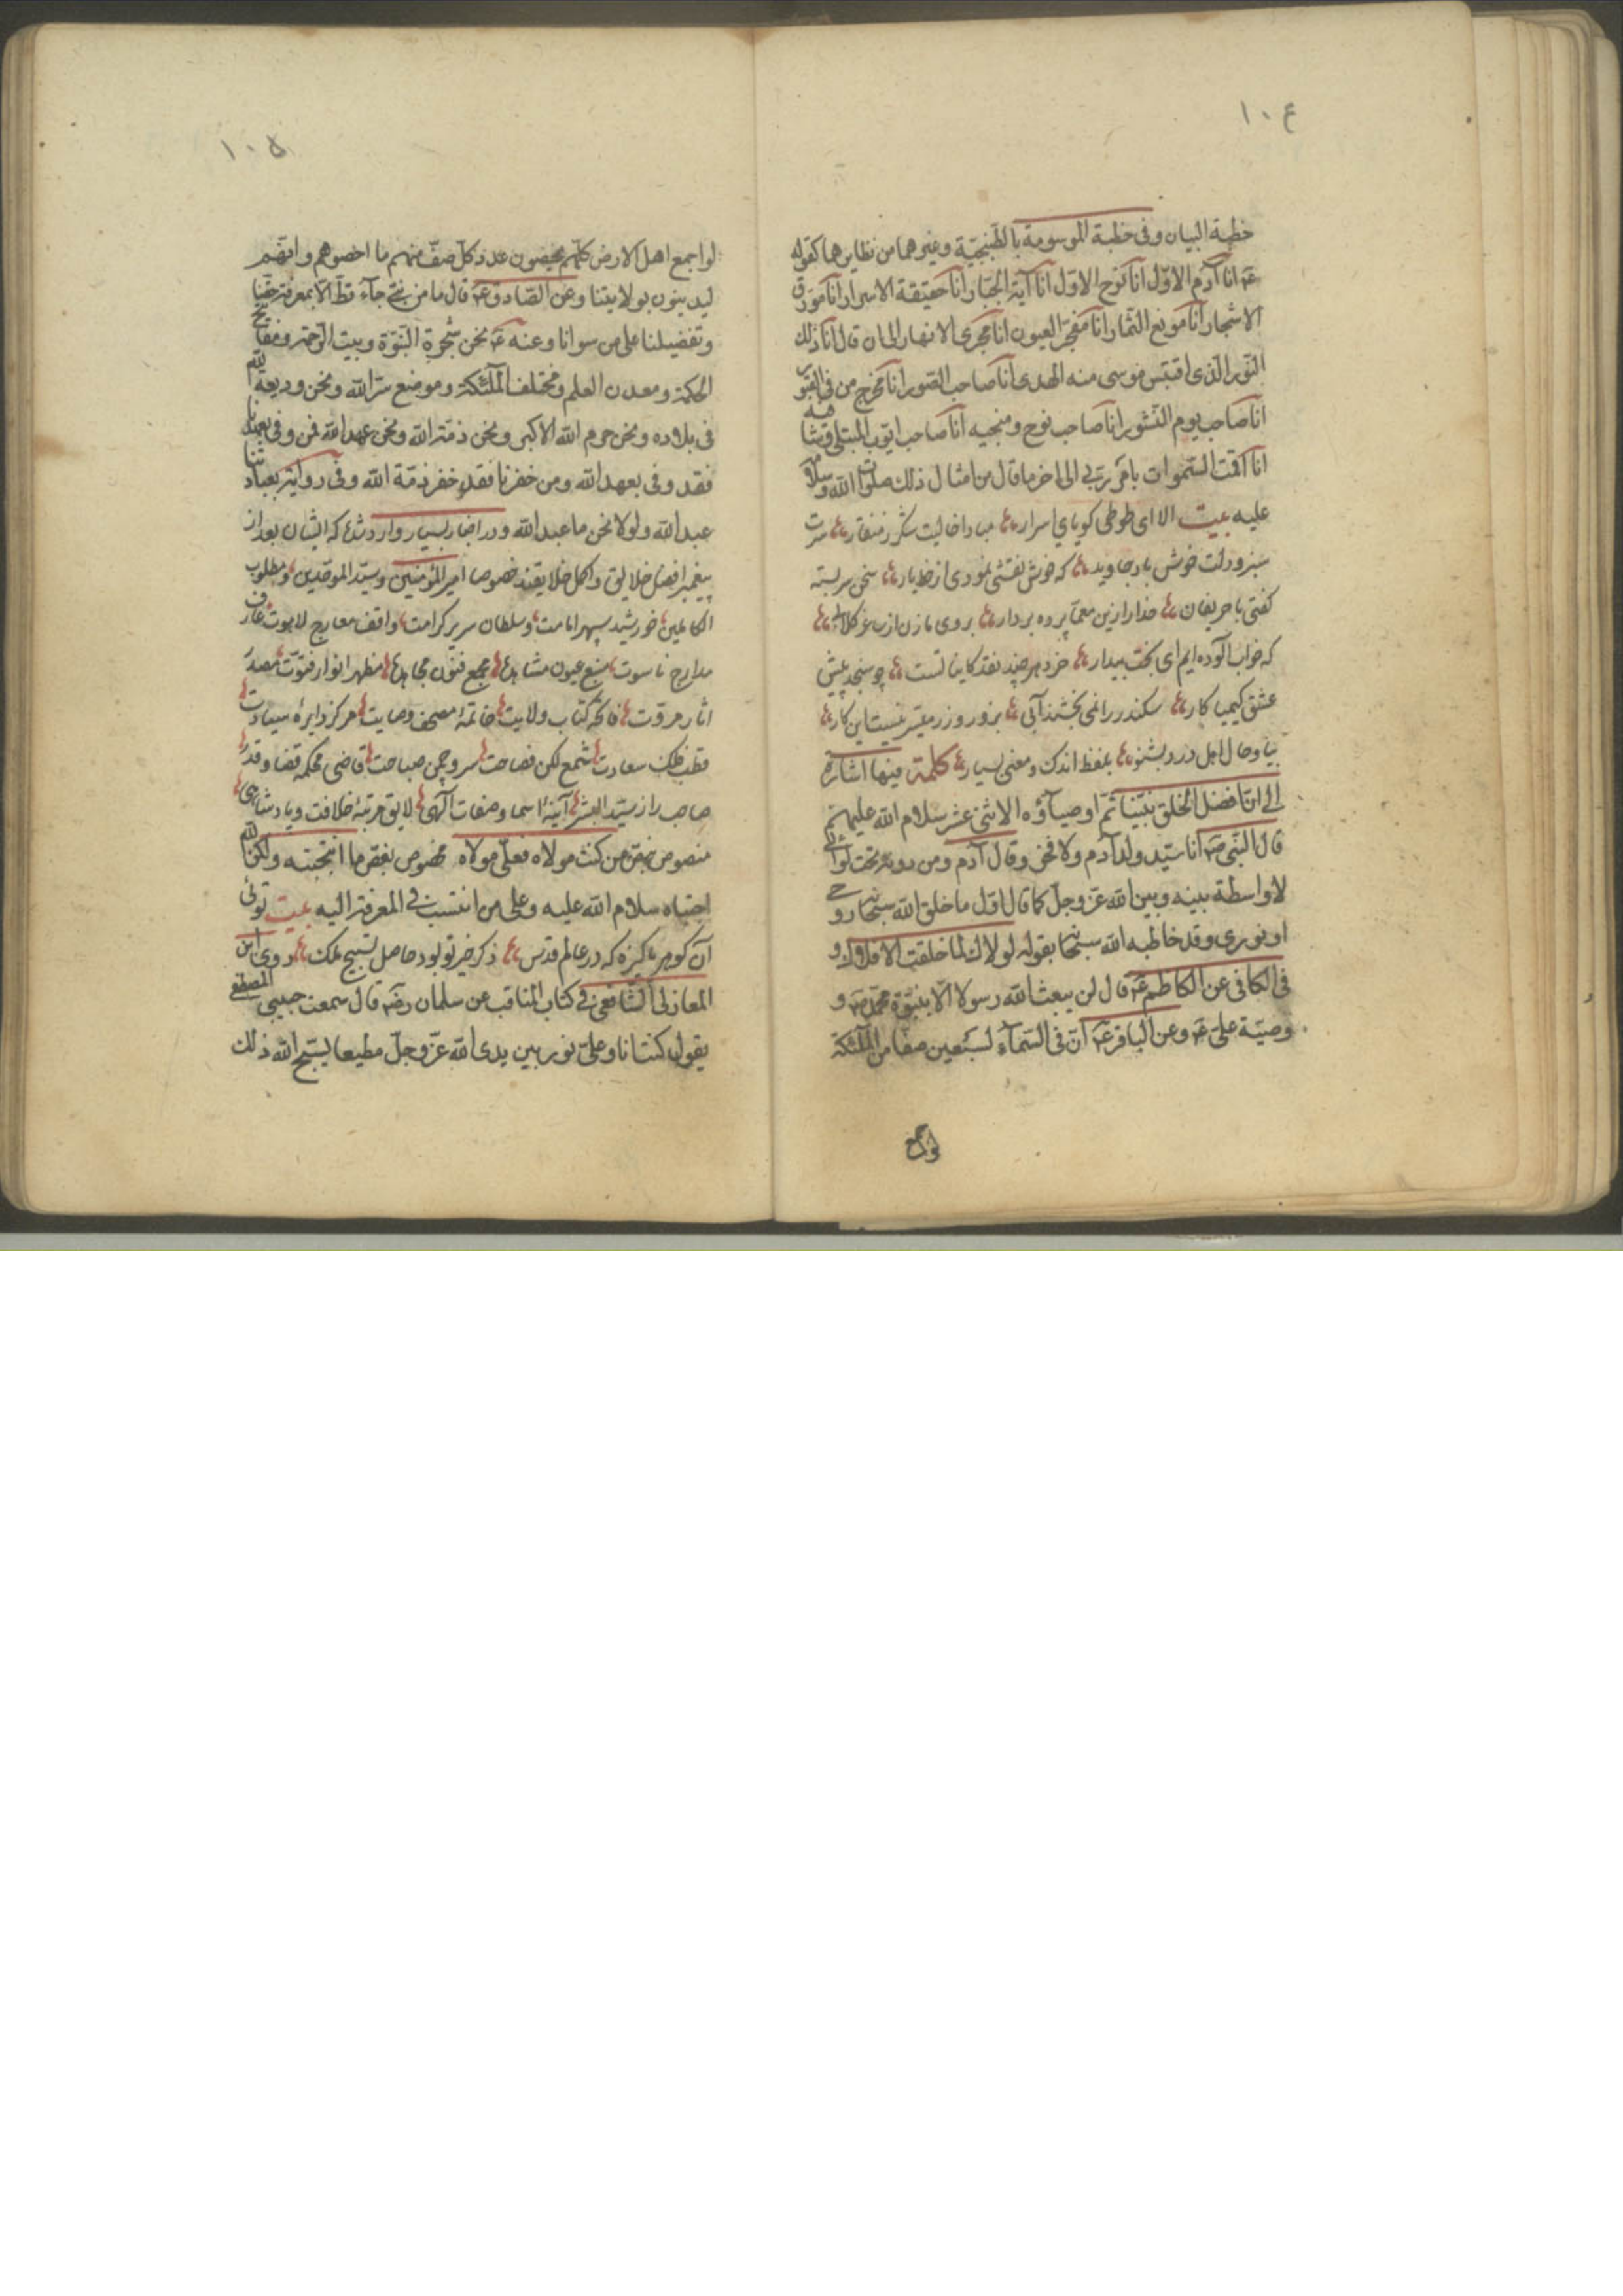 ١٠٤
خطبة البيان وفى خطبة الموسومة بالطتنجيّة وغيرهما من نظايرهما كقوله
عَ انا آدم الاوّل انا نوح الاوّل انا آية الجبّار انا حقيقة الاسرار انا مورق
الاشجار انا مونع الثمار انا مفجّر العيون انا مجرى الانهار الى ان قال انا ذلك
النّور الّذى اقتبس موسى منه الهدى انا صاحب الصّور انا مخرج من فى القبور
انا صاحب يوم النّشور انا صاحب نوح ومنجيه انا صاحب ايّوب المبتلى وشافيه
انا اقمت السّموات بامر ربّى الى اخر ما قال من امثال ذلك صلوات الله وسلامه
عليه بيت الا اى طوطى كوياي اسرار مبادا خاليت شكر ز منقار سرت
سبز و دلت خوش باد جاويد كه خوش نقشى نمودى از خط يار سخن سربسته
كفتى با حريفان خدا را زين معمّا پرده بردار بروى ما زن از ساغر كلابى
كه خواب آلوده ايم اى بخت بيدار خرد هر چند نقد كاينانست چو سنجد پيش
عشق كيميا كار سكندر را نمى بخشند آبى بزور و زر ميسّر نيست اين كار
بيا و حال اهل درد بشنو بلفظ اندك و معنى بسيار كلمة فيها اشارة
الى انّ افضل الخلق نبيّنا ثمّ اوصيآؤه الاثنى عشر سلام الله عليهم
قال النّبى صَ انا سيّد ولد آدم ولا فخر وقال آدم ومن دونه تحت لوائى
لا واسطة بينه وبين الله عزّ وجلّ كما قال اوّل ما خلق الله سبحانه روحى
او نورى وقد خاطبه الله سبحانه بقوله لولاك لما خلقت الافلاك و
فى الكافى عن الكاظم عَ قال لن يبعث الله رسولا الّا بنبوّة محمّد صَ و
وصيّة علىّ عَ وعن الباقر عَ انّ فى السّمآء لسبعين صفّا من الملئكة
لو اجمع
١٠٥
لو اجمع اهل الارض كلّهم يحصون عدد كلّ صفّ منهم ما احصوهم وانّهم
ليدينون بولايتنا وعن الصّادق عَ قال ما من نبىّ جآء قطّ الّا بمعرفة حقّنا
وتفضيلنا على من سوانا وعنه عَ نحن شجرة النّبوّة وبيت الرّحمة ومفاتيح
الحكمة ومعدن العلم ومختلف الملئكة وموضع سرّ الله ونحن وديعة الله
فى بلاده ونحن حرم الله الاكبر ونحن ذمّة الله ونحن عهد الله فمن وفى بعهدنا
فقد وفى بعهد الله ومن خفرنا فقد خفر ذمّة الله وفى رواية بعبادتنا
عبد الله ولولا نحن ما عبد الله ودر اخبار بسيار وارد شده كه ايشان بعد از
پيغمبر افضل خلايق و اكمل خلايقند خصوصا امير المؤمنين و سيّد الموحّدين ومطلوب
الكاملين خورشيد سپهر امامت وسلطان سرير كرامت واقف معارج لاهوت عارف
مدارج ناسوت منبع عيون مشاهده مجمع فنون مجاهده مظهر انوار فتوّت مصدر
اثار مروّت فاتحهٔ كتاب ولايت خاتمهٔ مصحف وصايت مركز دايرهٔ سيادت
قطب فلك سعادت شمع لكن فصاحت سرو چمن صباحت قاضى محكمهٔ قضا و قدر
صاحب راز سيّد البشر آينهٔ اسما و صفات آلهى لايق مرتبهٔ خلافت و پادشاهى
منصوص بنصّ من كنت مولاه فعلىّ مولاه مخصوص بفصّ ما انتجيته ولكن الله
اجتباه سلام الله عليه وعلى من انتسب فى المعرفة اليه بيت توئى
آن كوهر پاكيزه كه در عالم قدس ذكر خير تو بود حاصل تسبيح ملك روى ابن
المغازلى الشّافعى فى كتاب المناقب عن سلمان رضَ قال سمعت حبيبى المصطفى
يقول كنت انا وعلىّ نور بين يدى الله عزّ وجلّ مطيعا يسبّح الله ذلك